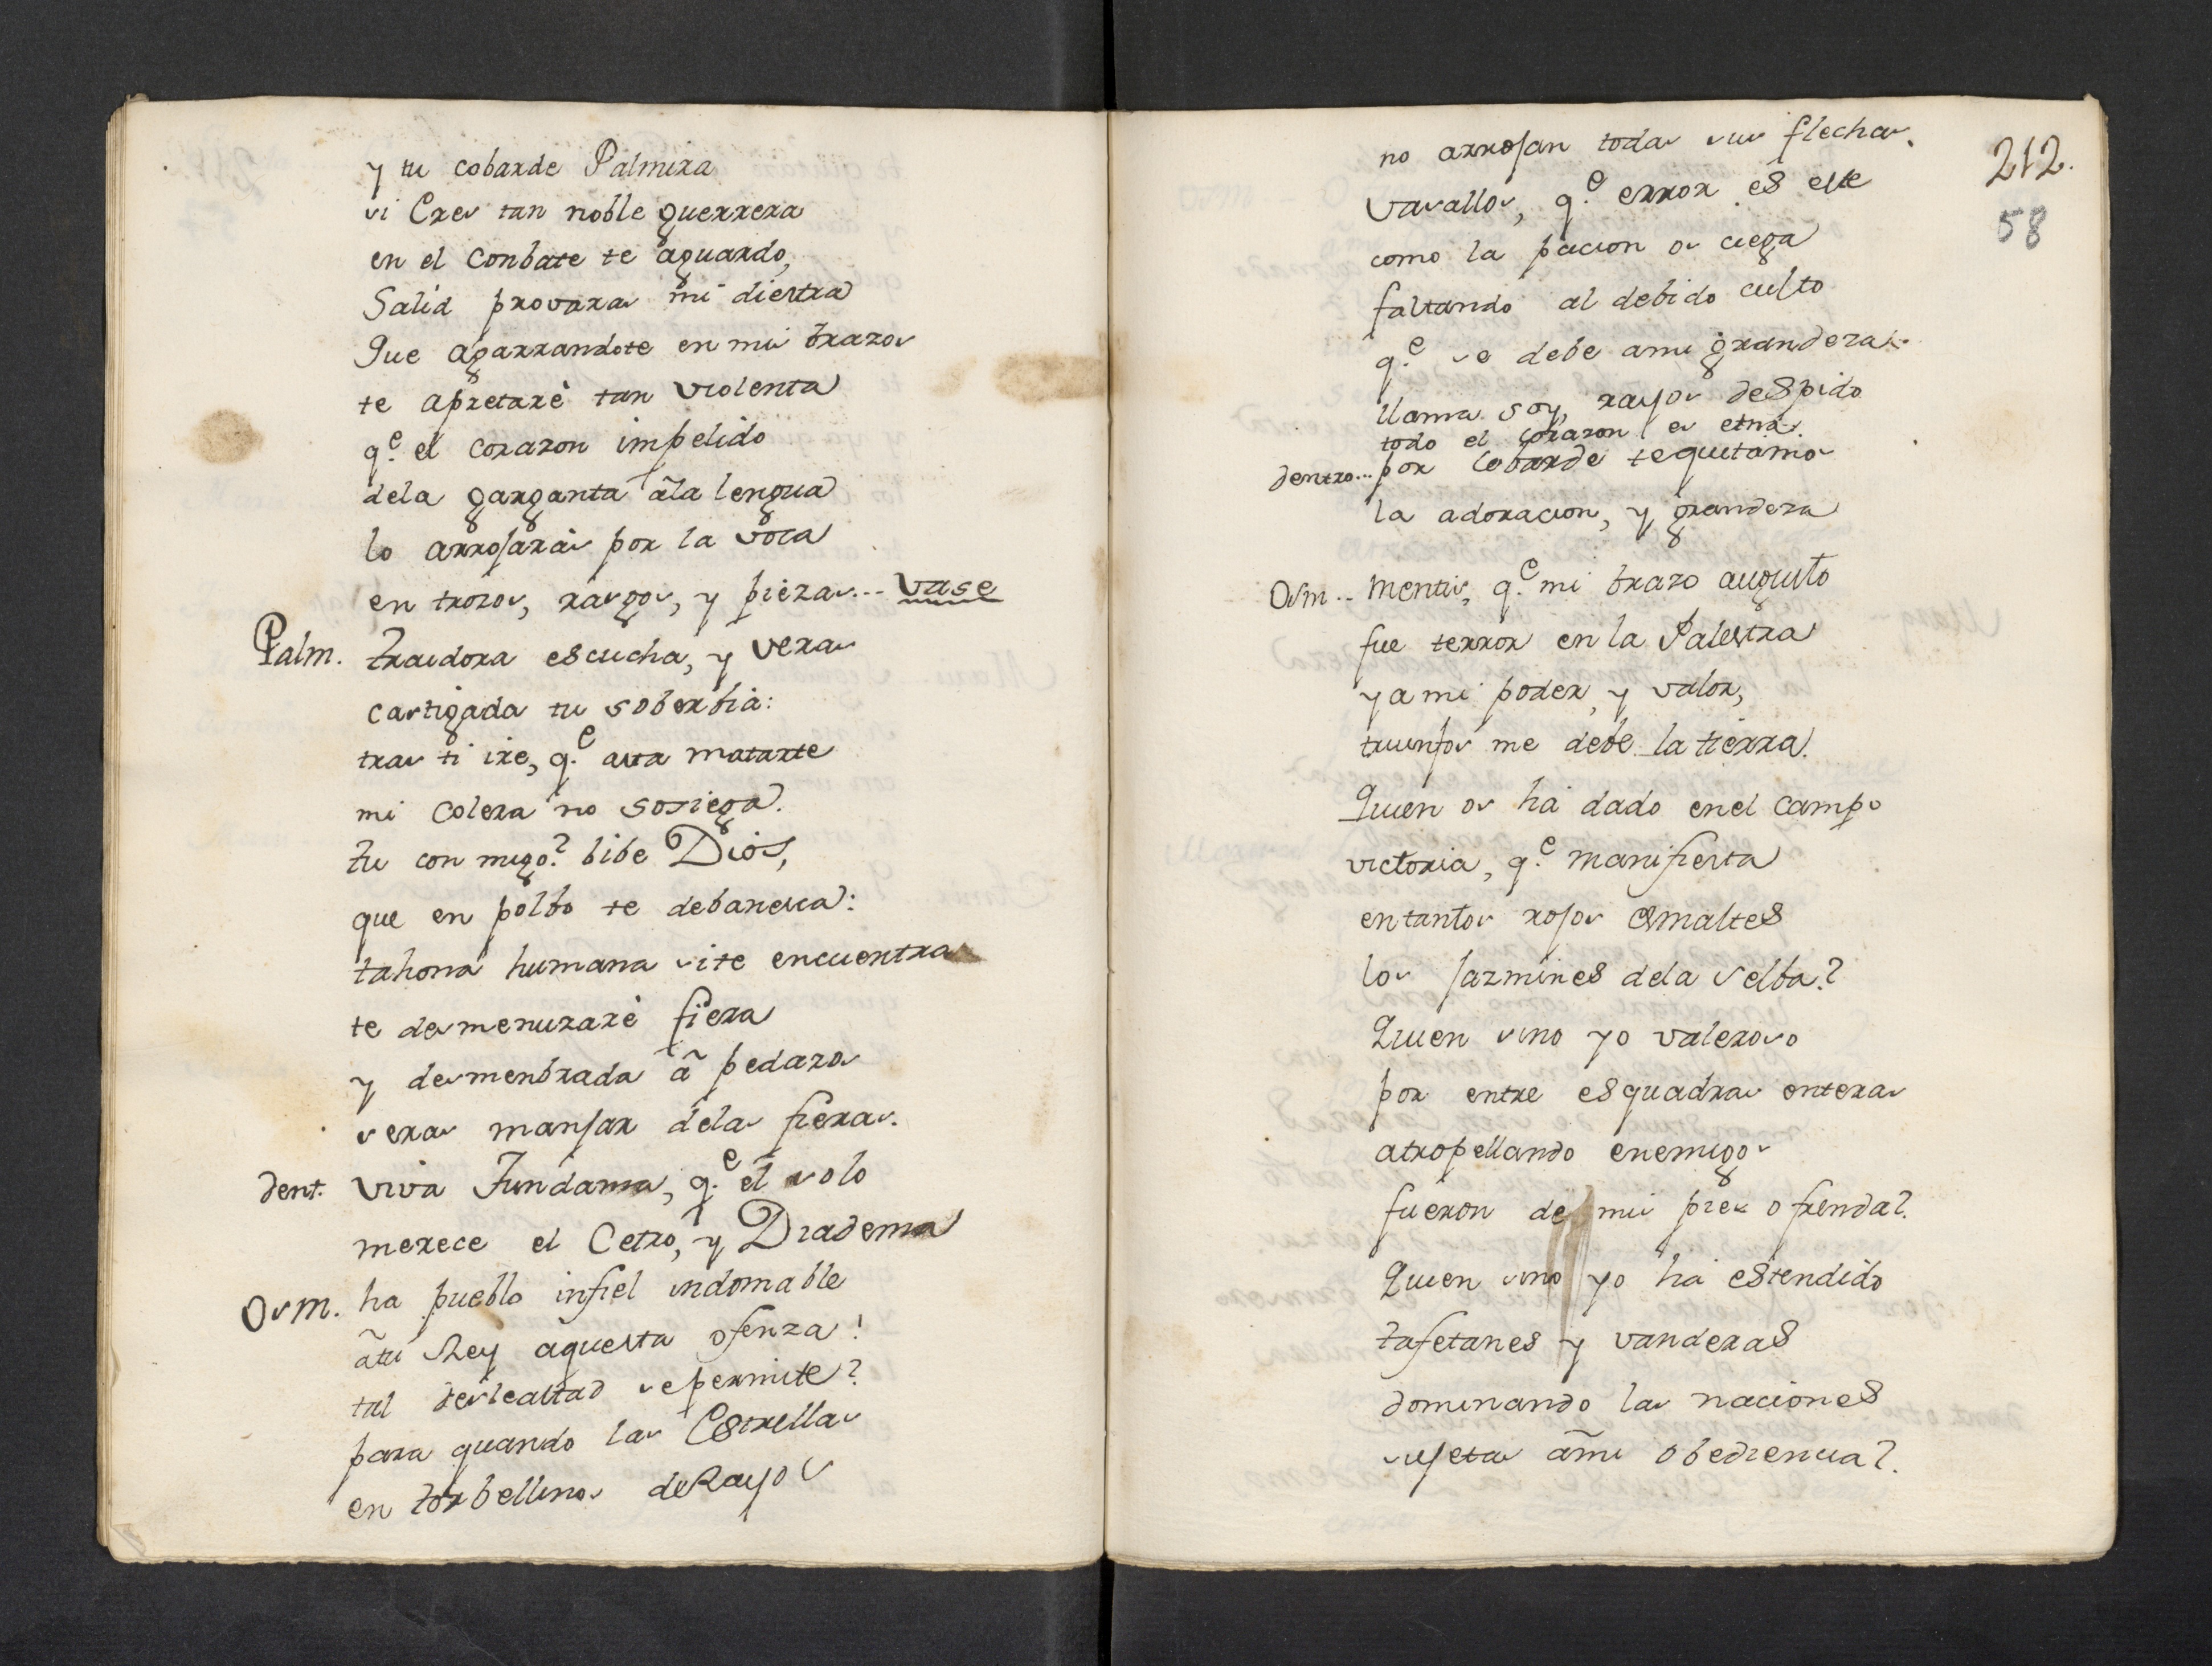 y tu cobarde Palmira
si Eres tan noble guerrera
en el Conbate te aguardo,
Salid provaras mi diestra
Que agarrandote en mis brazos
te apretarè tan violenta
q.e el corazon impelido
dela garganta âla lengua
lo arrojaràs por la voca
en trozos, rasgos, y piezas... vase
Palm. traidora escucha, y veras
castigada tu soberbia:
tras ti ire, q.e asta matarte
mi colera no sosiega.
tu con migo? bibe Dios,
que en polbo te debanesca:
tahona humana site encuentra
te desmenuzarè fiera
y desmenbrada â pedazos
seras manjar delas fieras.
dent. viva Fundama, q.e el solo
merece el Cetro, y Diadema
Osm. ha pueblo infiel indomable
âtu Rey aquesta ofenza!
tal deslealtad sepermite?
para quando las Estrellas
en torbellinos deRayos
212.
58
no arrojan todas sus flechas.
Vasallos, q.e error es este
como la pacion os ciega
faltando al debido culto
q.e se debe ami grandeza..
llama soy, rayos despido
todo el corazon es etna.
dentro... por Cobarde tequitamos
la adoracion, y grandeza
Osm.. mentis, q.e mi brazo augusto
fue terror en la Palestra
y a mi poder, y valor,
triunfos me debe la tierra.
Quien os ha dado enel campo
victoria, q.e manifiesta
entantos rojos esmaltes
los jazmines dela selba?
Quien sino yo valeroso
por entre esquadras enteras
atropellando enemigos
fueron de mis pies ofrenda?
Quien sino yo ha estendido
tafetanes y vanderas
dominando las naciones
sujetas âmi obediencia?